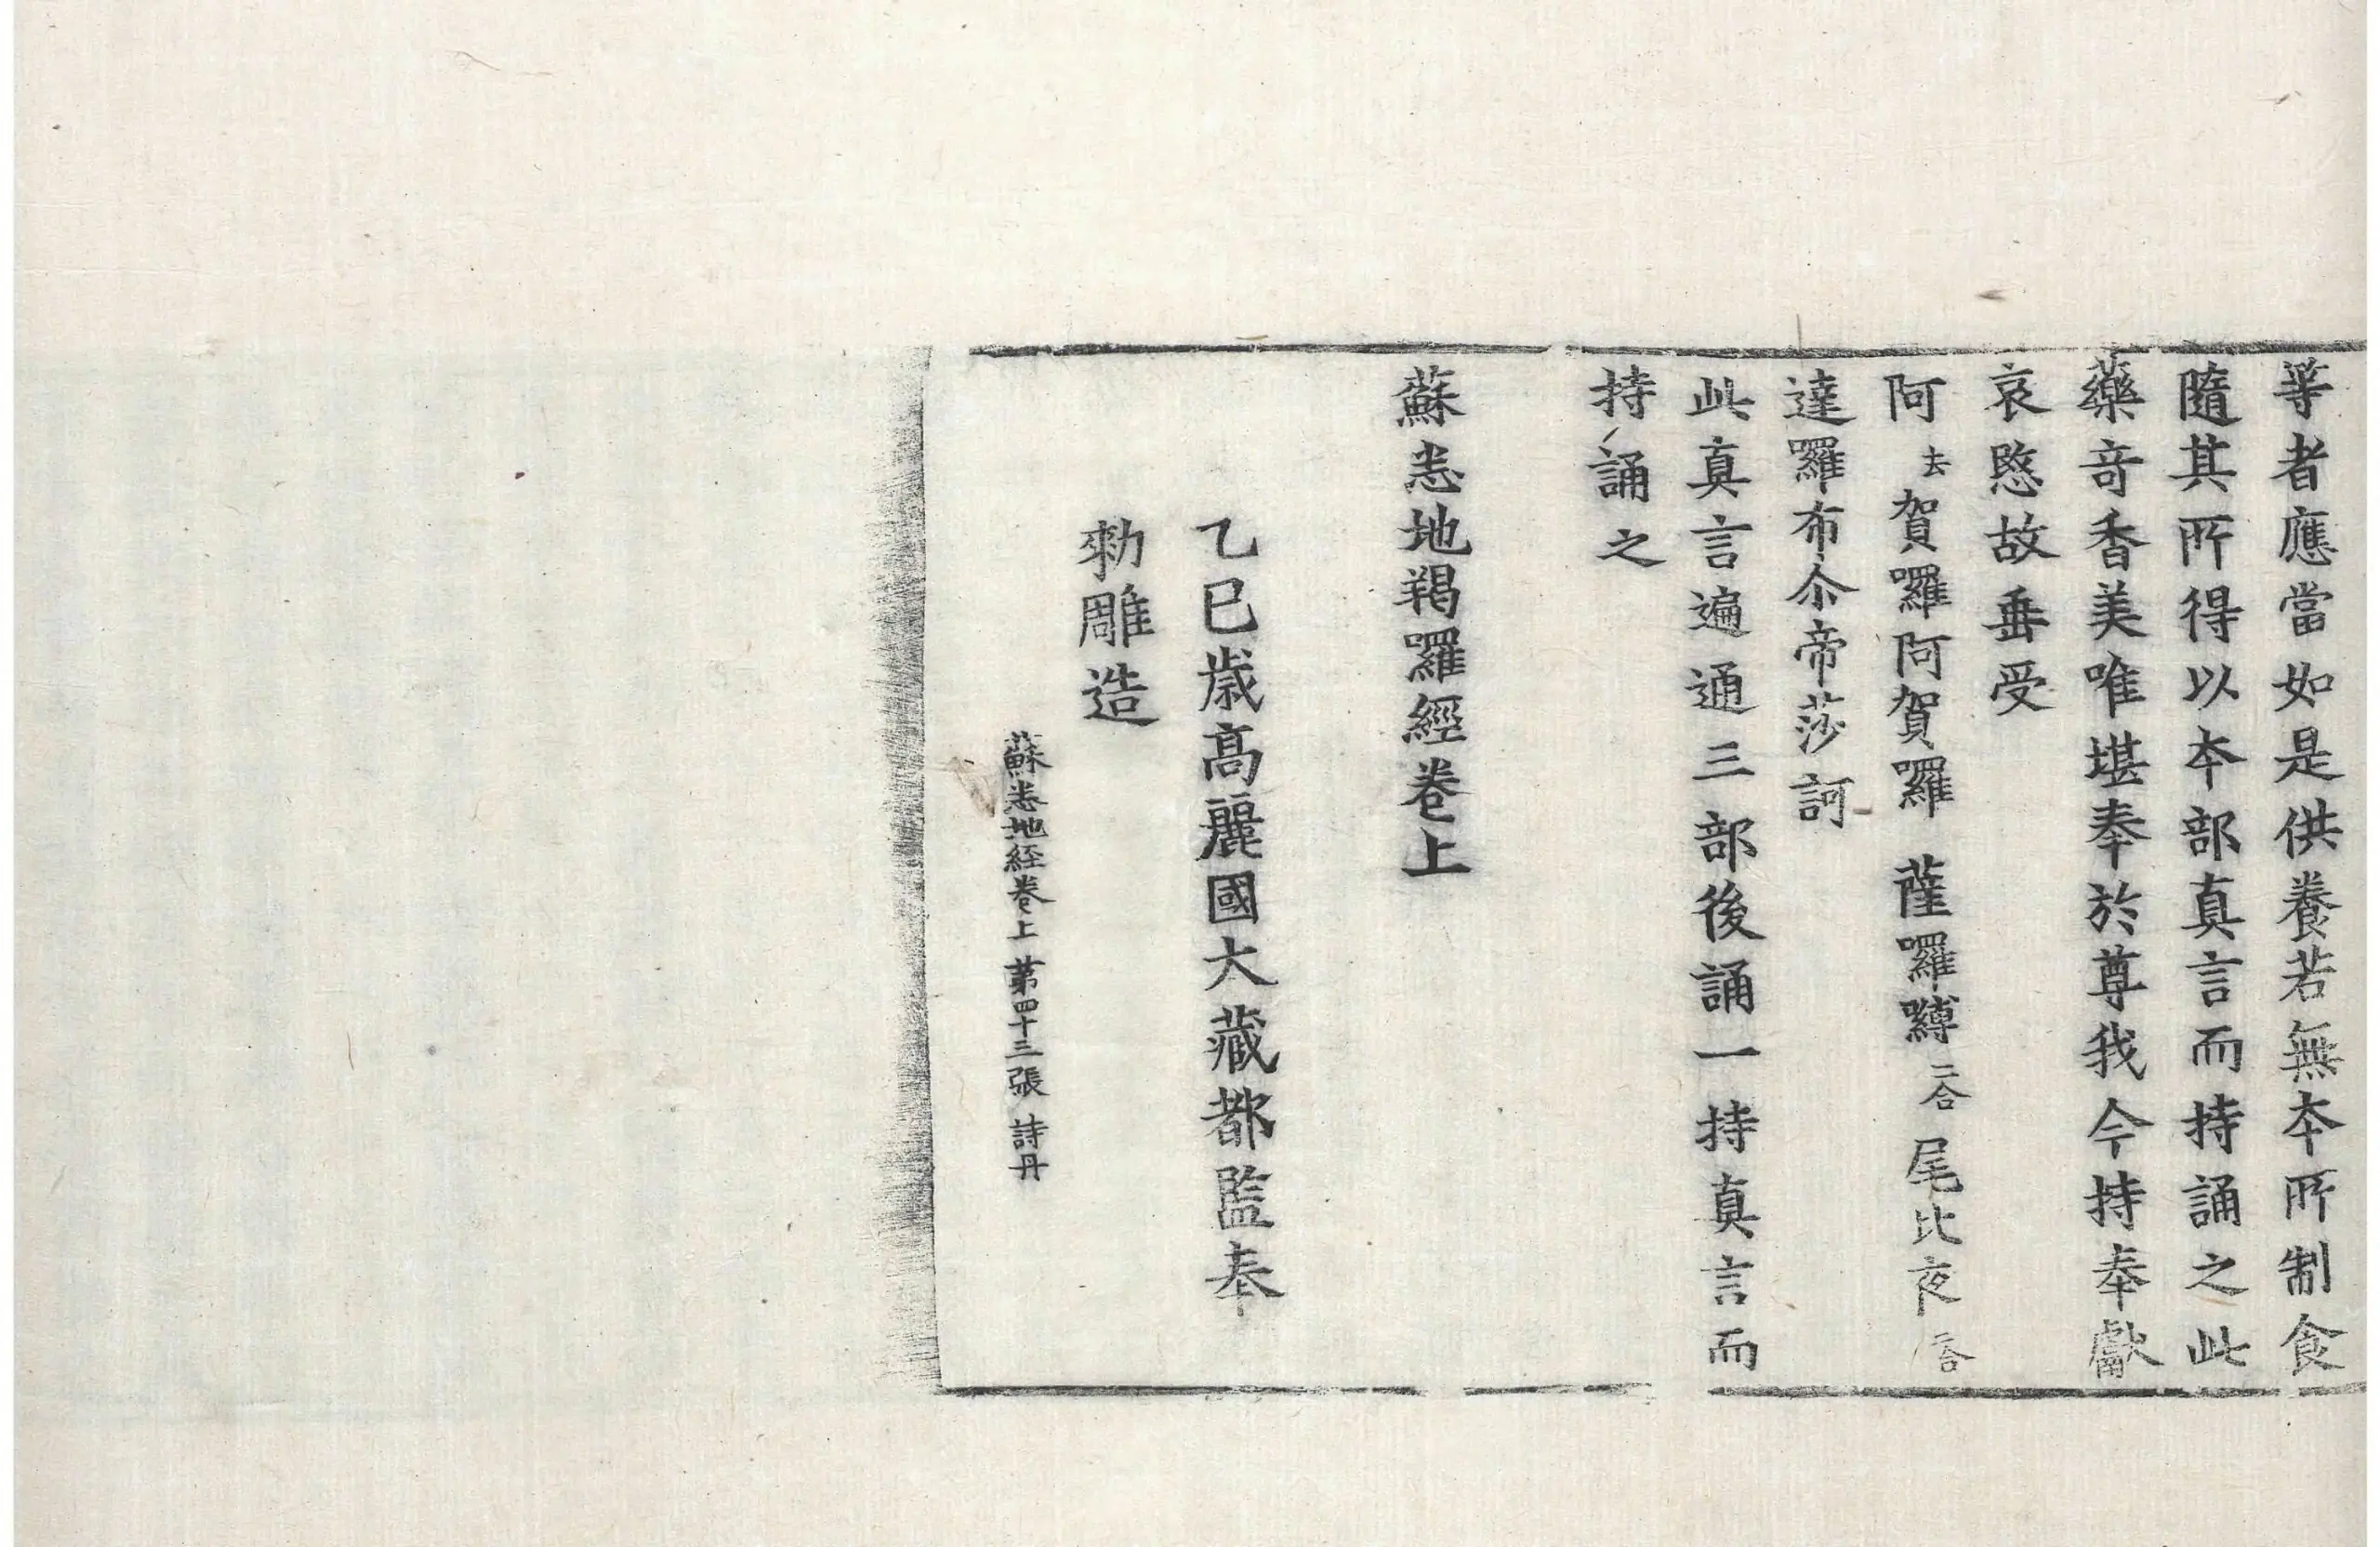 等者應當如是供養若無本所制食
隨其所得以本部真言而持誦之此
藥竒香美唯堪奉於尊我今持奉獻
哀愍故垂受
阿去賀囉阿賀囉 薩囉嚩二合尾比夜二合
達囉布尒帝莎訶
此真言遍通三部後誦一持真言而
持誦之
蘇悉地羯羅經卷上
乙巳歳高麗國大藏都監奉
勑雕造
蘇悉地経卷上 第四十三張 詩丹